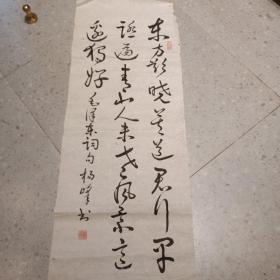 东方欲晓莫道君行早
踏遍青山人未老风景这
边独好 毛泽东词句 杨峰书